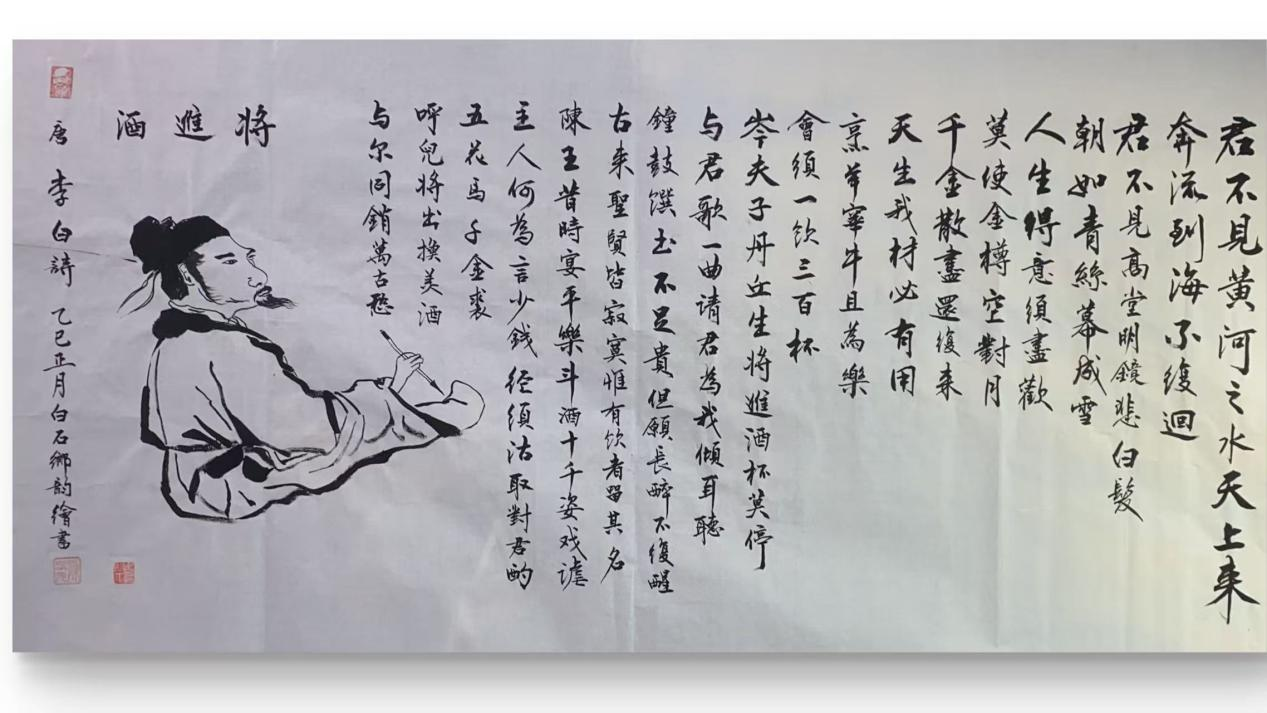 君不見黄河之水天上来
奔流到海不復迴
君不見高堂明鏡悲白髮
朝如青絲幕成雪
人生得意須盡歡
莫使金樽空對月
千金散盡還復来
天生我材必有用
烹羊宰牛且為樂
會須一饮三百杯
岑夫子丹丘生将進酒杯莫停
与君歌一曲请君為我傾耳聽
鐘鼓馔玉不足貴但願長醉不復醒
古来聖賢皆寂寞惟有饮者留其名
陳王昔時宴平樂斗酒十千姿戏谑
主人何為言少錢径須沽取對君酌
五花馬千金裘
呼兒将出換美酒
与尔同銷萬古愁
将進酒
唐 李白詩 乙巳正月白石鄉韵繪書